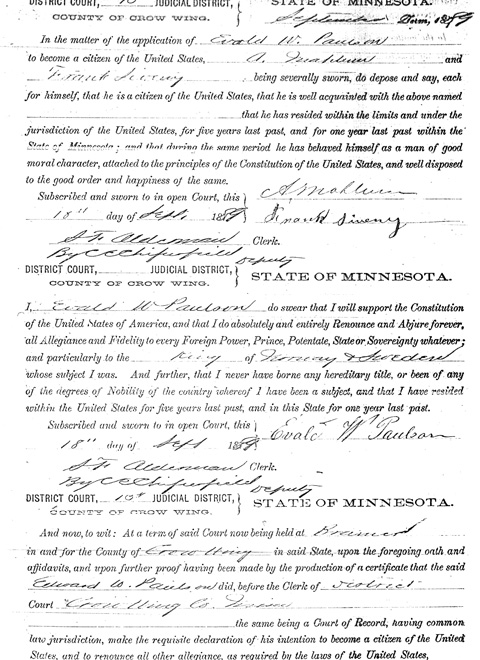 DISTRICT COURT, 15" JUDICIAL DISTRICT, } STATE OF MINNESOTA.
COUNTY OF CROW WING. September Term, 1889
In the matter of the application of Evald W. Paulson
to become a citizen of the United States, A. Mahlum and
Frank Siveny being severally sworn, do depose and say, each
for himself, that he is a citizen of the United States, that he is well acquainted with the above named
that he has resided within the limits and under the
jurisdiction of the United States, for five years last past, and for one year last past within the
State of Minnesota; and that during the same period he has behaved himself as a man of good
moral character, attached to the principles of the Constitution of the United States, and well disposed
to the good order and happiness of the same.
Subscribed and sworn to in open Court, this } A Mahlum
18" day of Sept 1889 } Frank Siveny
S. F. Alderman Clerk.
By C C Chipperfield Deputy
DISTRICT COURT, JUDICIAL DISTRICT, } STATE OF MINNESOTA.
COUNTY OF CROW WING.
I, Evald W Paulson do swear that I will support the Constitution
of the United States of America, and that I do absolutely and entirely Renounce and Abjure forever,
all Allegiance and Fidelity to every Foreign Power, Prince, Potentate, State or Sovereignty whatever;
and particularly to the King of Norway & Sweden
whose subject I was. And further, that I never have borne any hereditary title, or been of any
of the degrees of Nobility of the country whereof I have been a subject, and that I have resided
within the United States for five years last past, and in this State for one year last past.
Subscribed and sworn to in open Court, this } Evald Wm Paulson
18" day of Sept 1889 }
S F Alderman Clerk.
By C C Chipperfield Deputy
DISTRICT COURT, 15th JUDICIAL DISTRICT, } STATE OF MINNESOTA.
COUNTY OF CROW WING.
And now, to wit: At a term of said Court now being held at Brainerd
in and for the County of Crow Wing in said State, upon the foregoing oath and
affidavits, and upon further proof having been made by the production of a certificate that the said
Edward W. Paulson did, before the Clerk of District
Court Crow Wing Co. Minn
the same being a Court of Record, having common
law jurisdiction, make the requisite declaration of his intention to become a citizen of the United
States, and to renounce all other allegiance, as required by the laws of the United States,